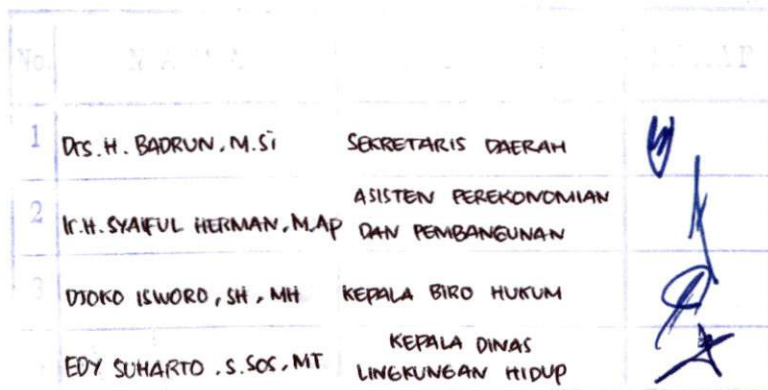 No. N A M A
1 Drs. H. BADRUN, M.Si SEKRETARIS DAERAH
2 Ir. H. SYAIFUL HERMAN, M.AP ASISTEN PEREKONOMIAN
DAN PEMBANGUNAN
3 DJOKO ISWORO, SH, MH KEPALA BIRO HUKUM
EDY SUHARTO. S.SOS, MT KEPALA DINAS
LINGKUNGAN HIDUP